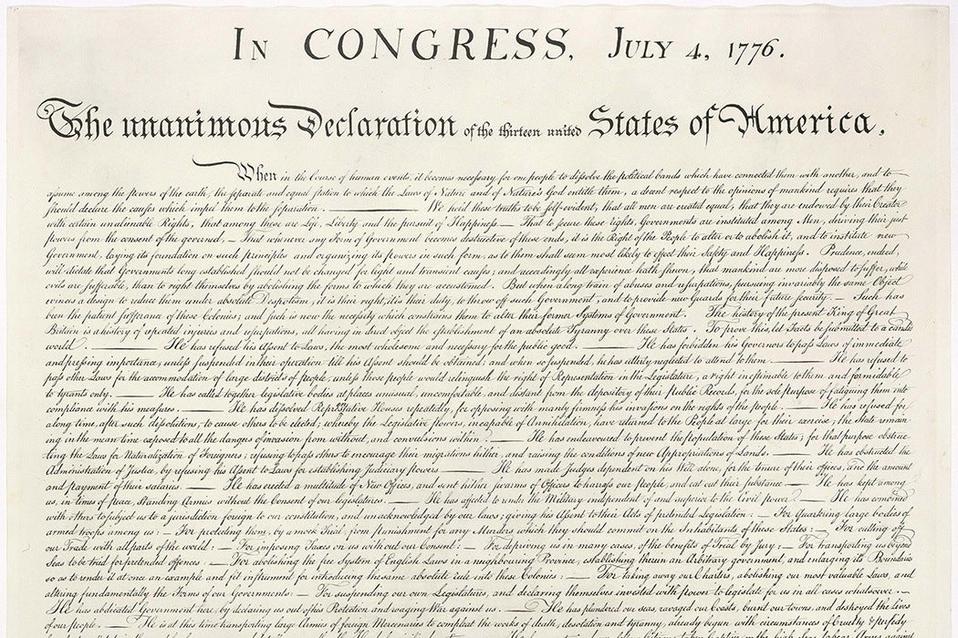 IN CONGRESS, JULY 4, 1776.
The unanimous Declaration of the thirteen united States of America,
When in the Course of human events, it becomes necessary for one people to dissolve the political bands which have connected them with another, and to
assume among the powers of the earth, the separate and equal station to which the Laws of Nature and of Nature's God entitle them, a decent respect to the opinions of mankind requires that they
should declare the causes which impel them to the separation. ——— We hold these truths to be self-evident, that all men are created equal, that they are endowed by their Creator
with certain unalienable Rights, that among these are Life, Liberty and the pursuit of Happiness. — That to secure these rights, Governments are instituted among Men, deriving their just
powers from the consent of the governed, — That whenever any Form of Government becomes destructive of these ends, it is the Right of the People to alter or to abolish it, and to institute new
Government, laying its foundation on such principles and organizing its powers in such form, as to them shall seem most likely to effect their Safety and Happiness. Prudence, indeed,
will dictate that Governments long established should not be changed for light and transient causes; and accordingly all experience hath shewn, that mankind are more disposed to suffer, while
evils are sufferable, than to right themselves by abolishing the forms to which they are accustomed. But when a long train of abuses and usurpations, pursuing invariably the same Object
evinces a design to reduce them under absolute Despotism, it is their right, it is their duty, to throw off such Government, and to provide new Guards for their future security. — Such has
been the patient sufferance of these Colonies; and such is now the necessity which constrains them to alter their former Systems of Government. The history of the present King of Great
Britain is a history of repeated injuries and usurpations, all having in direct object the establishment of an absolute Tyranny over these States. To prove this, let Facts be submitted to a candid
world. ——— He has refused his Assent to Laws, the most wholesome and necessary for the public good. ——— He has forbidden his Governors to pass Laws of immediate
and pressing importance, unless suspended in their operation till his Assent should be obtained; and when so suspended, he has utterly neglected to attend to them. ——— He has refused to
pass other Laws for the accommodation of large districts of people, unless those people would relinquish the right of Representation in the Legislature, a right inestimable to them and formidable
to tyrants only. ——— He has called together legislative bodies at places unusual, uncomfortable, and distant from the depository of their Public Records, for the sole purpose of fatiguing them into
compliance with his measures. ——— He has dissolved Representative Houses repeatedly, for opposing with manly firmness his invasions on the rights of the people. ——— He has refused for
a long time, after such dissolutions, to cause others to be elected; whereby the Legislative powers, incapable of Annihilation, have returned to the People at large for their exercise; the State remain-
ing in the mean time exposed to all the dangers of invasion from without, and convulsions within. ——— He has endeavoured to prevent the population of these States; for that purpose obstruc-
ting the Laws for Naturalization of Foreigners; refusing to pass others to encourage their migrations hither, and raising the conditions of new Appropriations of Lands. ——— He has obstructed the
Administration of Justice, by refusing his Assent to Laws for establishing Judiciary powers. ——— He has made Judges dependent on his Will alone, for the tenure of their offices, and the amount
and payment of their salaries. ——— He has erected a multitude of New Offices, and sent hither swarms of Officers to harrass our people, and eat out their substance. ——— He has kept among
us, in times of peace, Standing Armies without the Consent of our legislatures. ——— He has affected to render the Military independent of and superior to the Civil power. ——— He has combined
with others to subject us to a jurisdiction foreign to our constitution, and unacknowledged by our laws; giving his Assent to their Acts of pretended Legislation: — For Quartering large bodies of
armed troops among us: — For protecting them, by a mock Trial, from punishment for any Murders which they should commit on the Inhabitants of these States: — For cutting off
our Trade with all parts of the world: — For imposing Taxes on us without our Consent: — For depriving us in many cases, of the benefits of Trial by Jury: — For transporting us beyond
Seas to be tried for pretended offences — For abolishing the free System of English Laws in a neighbouring Province, establishing therein an Arbitrary government, and enlarging its Boundaries
so as to render it at once an example and fit instrument for introducing the same absolute rule into these Colonies: — For taking away our Charters, abolishing our most valuable Laws, and
altering fundamentally the Forms of our Governments: — For suspending our own Legislatures, and declaring themselves invested with power to legislate for us in all cases whatsoever. —
He has abdicated Government here, by declaring us out of his Protection and waging War against us. — He has plundered our seas, ravaged our Coasts, burnt our towns, and destroyed the lives
of our people. — He is at this time transporting large Armies of foreign Mercenaries to compleat the works of death, desolation and tyranny, already begun with circumstances of Cruelty & perfidy